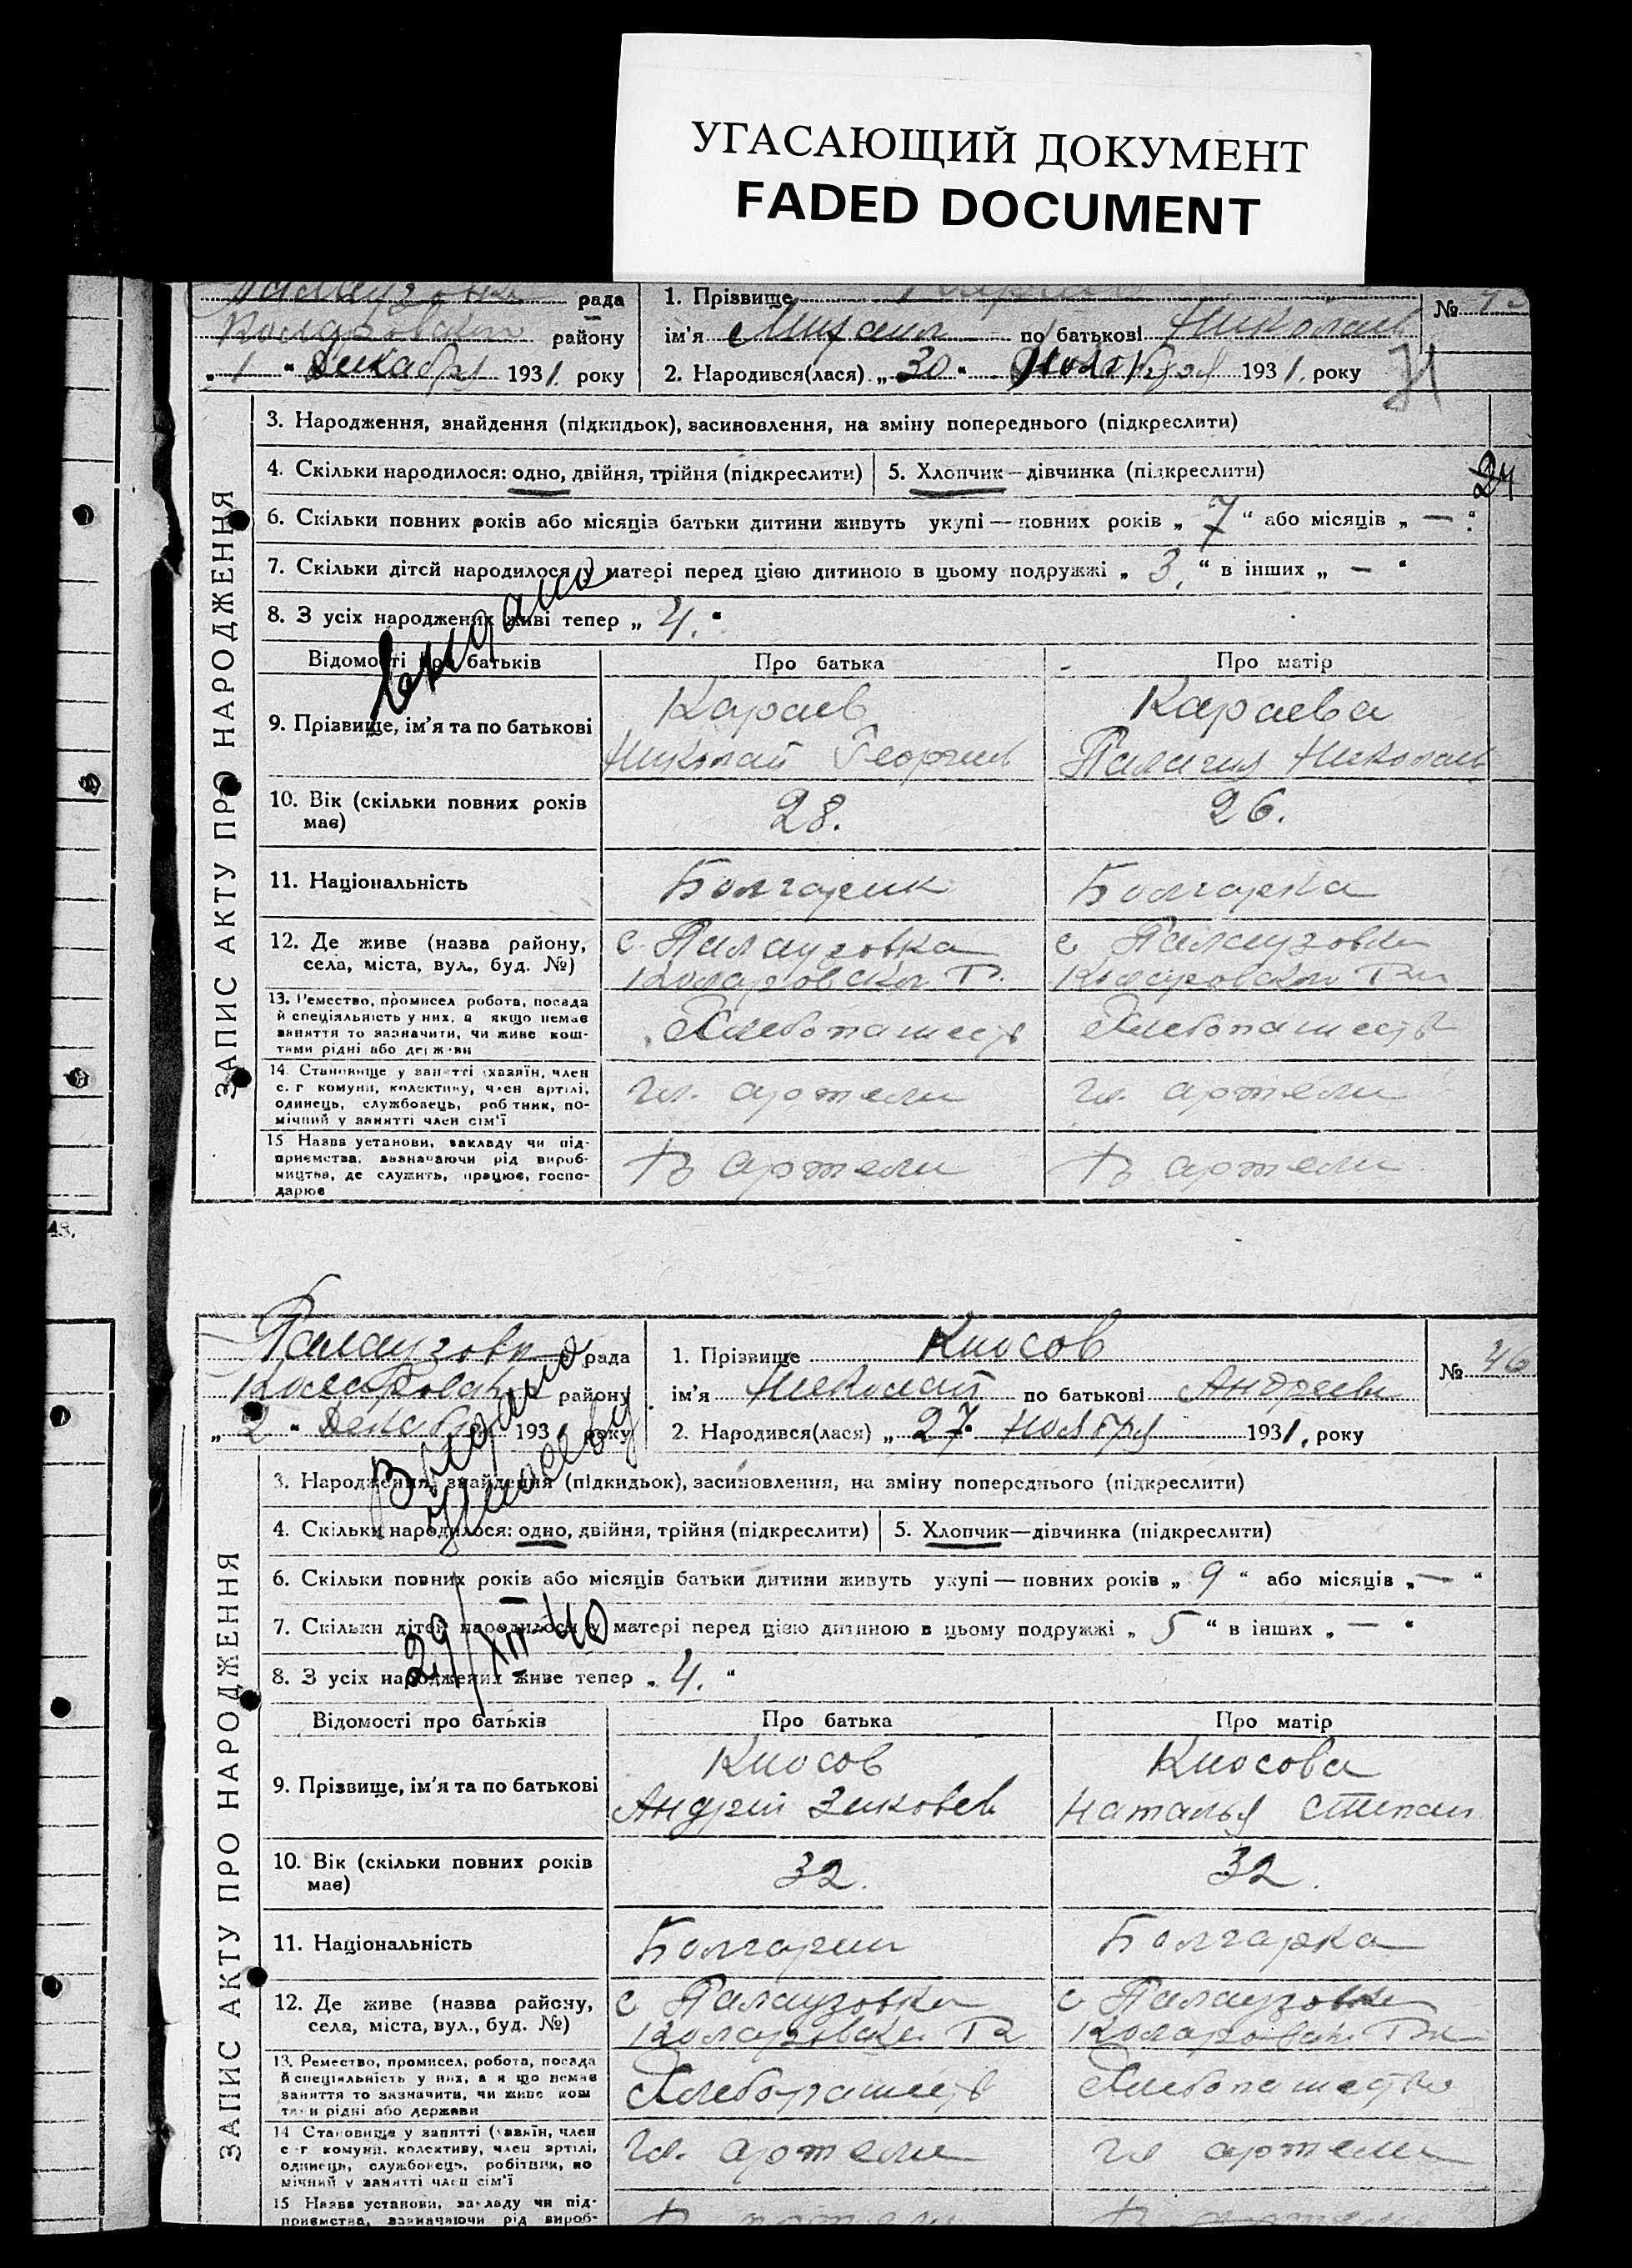 УГАСАЮЩИЙ ДОКУМЕНТ
FADED DOCUMENT
рада
району
„ 1 “ Декабря 1931. року
1. Прізвище
ім'я Михаил по батькові Николаев
2. Народився(лася) „ 30 “ Ноября 1931. року
№
71
3. Народження, знайдення (підкидьок), засиновлення, на зміну попереднього (підкреслити)
4. Скільки народилося: одно, двійня, трійня (підкреслити)
5. Хлопчик—дівчинка (підкреслити)
24
6. Скільки повних років або місяців батьки дитини живуть укупі — повних років „ 7 “ або місяців „ — “
7. Скільки дітей народилося у матері перед цією дитиною в цьому подружжі „ 3. “ в інших „ — “
8. З усіх народжених живі тепер „ 4. “
Відомості про батьків
Про батька
Про матір
9. Прізвище, ім'я та по батькові
Караев
Николай Георгиев
Караева
Палагия Николаев
10. Вік (скільки повних років має)
28.
26.
11. Національність
Болгарик
Болгарка
12. Де живе (назва району, села, міста, вул., буд. №)
с. Палаузовка
Коларовски Р.
с Палаузовка
13. Ремество, промисел, робота, посада й спеціяльність у них, а якщо немає заняття то зазначити, чи живе коштами рідні або держави
Хлебопашест
Хлебопашеств
14. Становище у занятті (хазяїн, член с.-г комуни, колективу, член артілі, одинець, службовець, робітник, помічний у занятті член сім'ї
чл. артели
чл. артели
15 Назва установи, закладу чи підприємства, зазначаючи рід виробництва, де служить, працює, господарює
В артели
В артели
ЗАПИС АКТУ ПРО НАРОДЖЕННЯ
48.
рада
району
„ 2 “ 1931 року
1. Прізвище Киосов
ім'я Николай по батькові Андреевич
2. Народився(лася) „ 27 “ ноября 1931. року
№ 46
3. Народження, знайдення (підкидьок), засиновлення, на зміну попереднього (підкреслити)
4. Скільки народилося: одно, двійня, трійня (підкреслити)
5. Хлопчик—дівчинка (підкреслити)
6. Скільки повних років або місяців батьки дитини живуть укупі — повних років „ 9 “ або місяців „ — “
7. Скільки дітей народилося у матері перед цією дитиною в цьому подружжі „ 5 “ в інших „ — “
29/XII 40
8. З усіх народжених живе тепер „ 4. “
Відомості про батьків
Про батька
Про матір
9. Прізвище, ім'я та по батькові
Киосов
Андрей
Киосова
Наталья Степан
10. Вік (скільки повних років має)
32.
32.
11. Національність
Болгарин
Болгарка
12. Де живе (назва району, села, міста, вул., буд. №)
с Палаузовка
с Палаузовка
13. Ремество, промисел, робота, посада й спеціяльність у них, а якщо немає заняття то зазначити, чи живе коштами рідні або держави
Хлебопашеств
Хлебопашество
14 Становище у занятті (хазяїн, член с-г комуни, колективу, член артілі, одинець, службовець, робітник, помічний у занятті член сім'ї
чл. артели
чл артели
15 Назва установи, закладу чи підприємства, зазначаючи рід вироб-
В артели
В артели
ЗАПИС АКТУ ПРО НАРОДЖЕННЯ